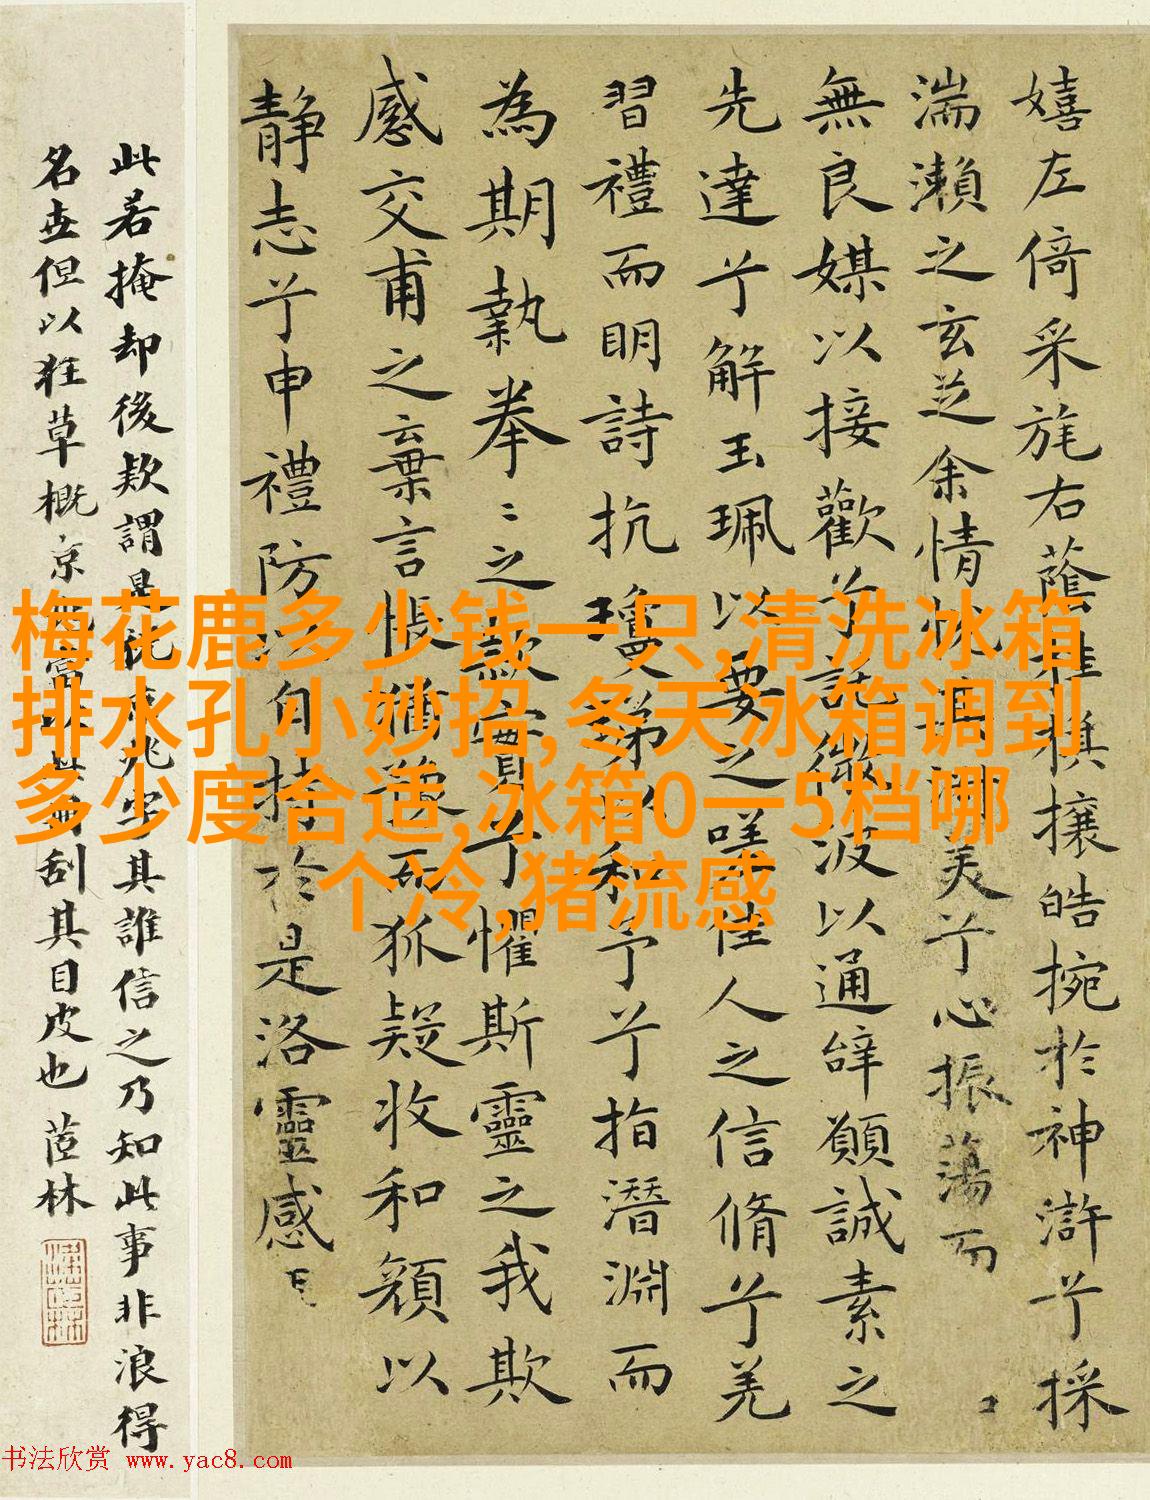 嬉左倚采旄右蔭桂旗攘皓捥於神滸兮採
湍瀨之玄芝余情悅其淑美兮心振蕩而
無良媒以接歡兮託微波以通辭願誠素之
先達兮解玉珮以要之嗟佳人之信脩兮羌
習禮而明詩抗瓊珶以和予兮兮指潛淵而
為期執拳〻之款實兮懼斯靈之我欺
感交甫之棄言悵猶豫而狐疑收和顏以
靜志兮申禮防以自持於是洛靈感
此若掩却後款謂是祝京兆字其誰信之乃知此事非浪得
名世但以狂草概京兆當以此冊刮其目皮也 茝林
梅花鹿多少钱一只,清洗冰箱
排水孔小妙招,冬天冰箱调到
多少度合适,冰箱0一5档哪
个冷,猪流感
书法欣赏 www.yac8.com